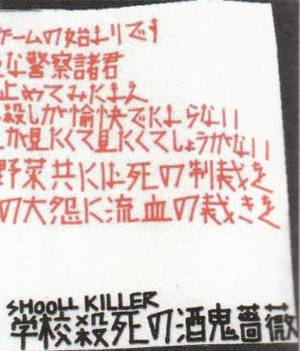 ゲームの始まりです
な警察諸君
止めてみたまえ
殺しが愉快でたまらない
が見たくて見たくてしょうがない
野菜共には死の制裁を
の大怨に流血の裁きを
SHOOLL KILLER
学校殺死の酒鬼薔薇